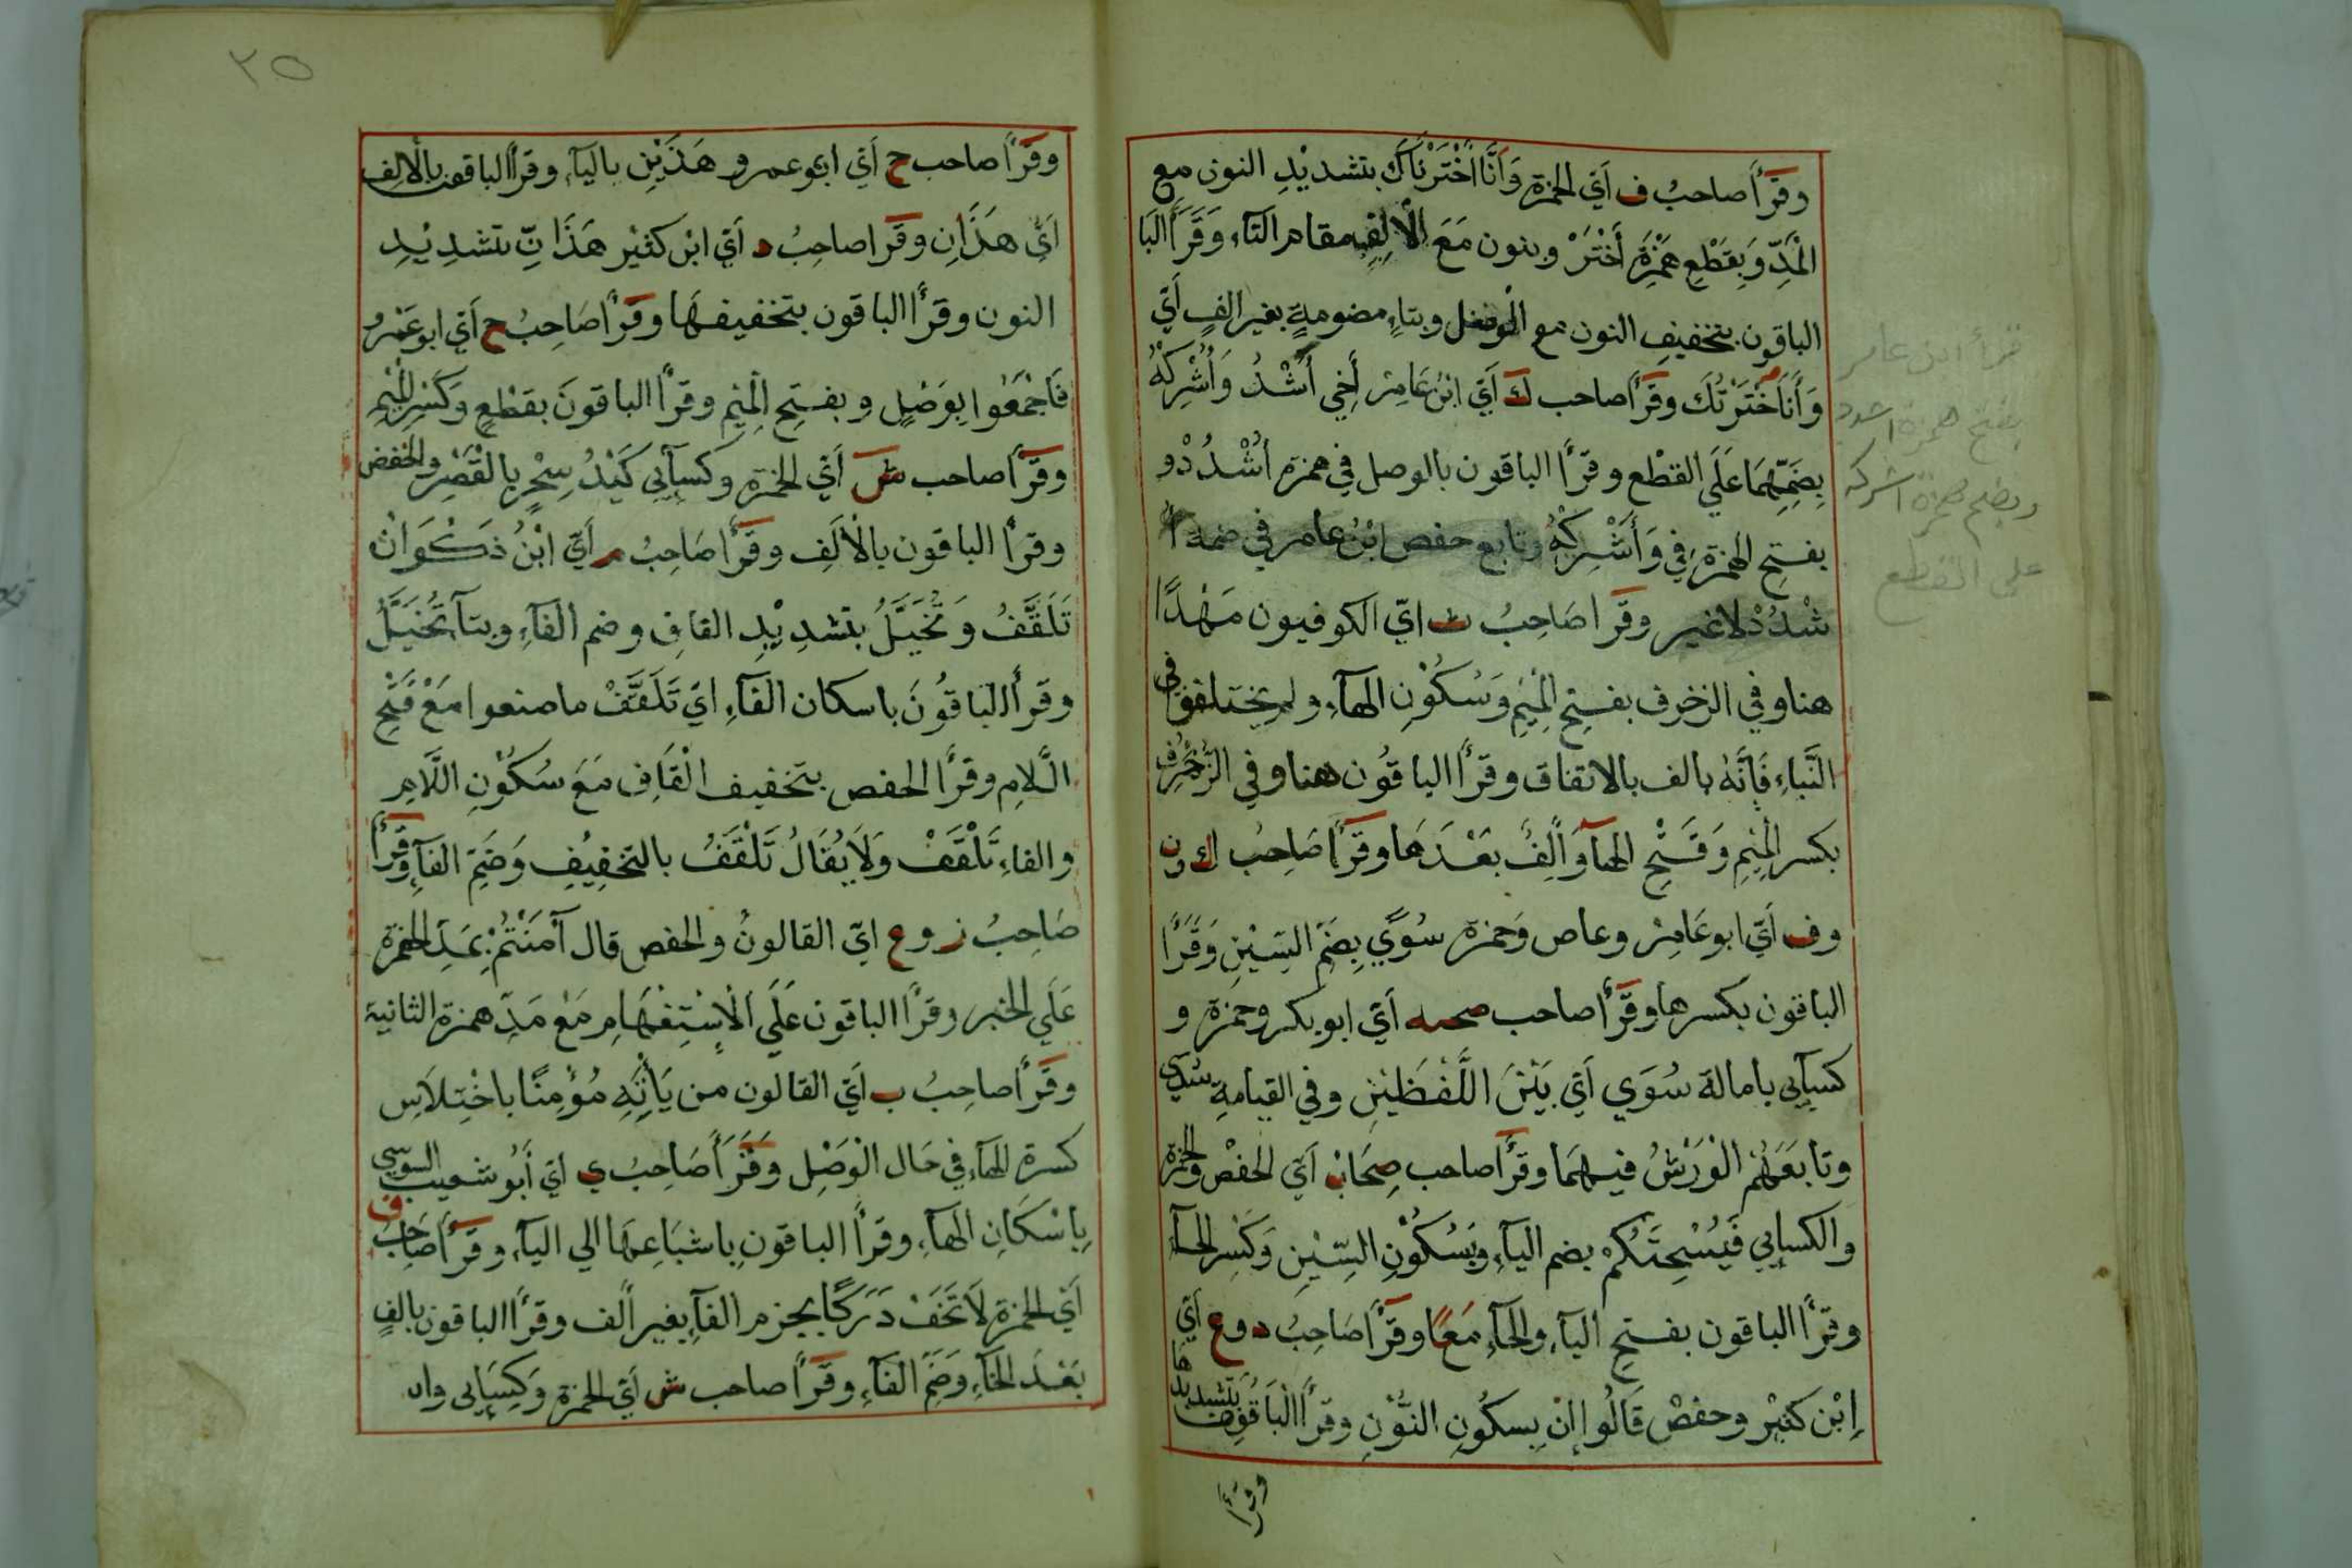 وقرأ صاحبُ ف اَيّ الحمزة وَاَنَّا اَخْتَرْنَاكَ بتشديْدِ النون مع
الْمَدِّ وَبِقَطْعِ هَمْزَةِ أَخْتَرْ وبنون مَعَ الْاَلِفِ مقام التآء وَقَرَأَ البَا
الباقون بتخفيفِ النون مع الوصل وبتاءٍ مضومةٍ بغير الفٍ أيّ
وَأَنَا اخْتَرْتُكَ وقرأ صاحب كَ اَيّ ابْنُ عَامِرْ أَخِي أَشْدُ وَأُشْرِكْهُ
بِضَمِّهِمَا عَلَي القَطْع وقرأ الباقون بالوصل في همزة أُشْدُدْ و
بفتحِ الهمزةِ في وَأَشْرِكْهُ وتابع حفص ابْنُ عامر في ضمه ا
شْدُدْ لا غير وقرا صَاحِبُ ث ايّ الكوفيون مَهْدًا
هنا وفي الزخرف بفتحِ الْمِيْمِ وَسُكُوْنِ الهآءِ ولم يختلفو في
النَّباءِ فَاِنَّهُ بالف بالاتفاق وقرأ الباقُون هنا وفي الزُّخْرُفِ
بكسر الْمِيْمِ وَفَتْحِ الهآ وَاَلِفٌ بَعْدَهَا وقرأ صَاحِبُ ك ون
وف اَيّ ابو عَامِرْ وعاص وَحمزة سُوًي بِضَمِّ السِّيْنِ وَقَرَأ
الباقون بكسرها وقرأ صاحب صحبه اَيّ ابو بكر وحمزة و
كسآيي بامالة سُوَي اَيّ بَيْنَ اللَّفْظَيْنِ وفي القيامةِ سُدي
وتابَعَهُمْ الْوَرَشُ فيهِمَا وقرأ صاحب صِحَابْ اَيّ الحفصْ والحمزة
والكسايي فَيُسْحِتَكُمْ بضم اليآءِ وَبِسُكُوْنِ السِّيْنِ وَكَسْرِ الحآءِ
وقرأ الباقون بفتحِ اليآءِ والحآءِ مَعًا وقرأ صَاحِبُ د وع اَيّ
اِبْن كثِيْرْ وحفصْ قَالُوا إِنْ بِسكُونِ النُّوْنِ وقرأ الْبَاقُوْنَ بتشديدها
وقرأ
قرأ ابن عامر
بفتح همزة اشدد
وبضم همزة اشركه
على القطع
٢٥
وقرأ صاحب ح اَيّ ابو عمرو هَذَيْنِ باليآءِ وقرأ الباقون بالْاَلِف
اَيّ هَذَانِ وقَرا صاحِبُ د اَيّ ابْن كثيْر هَذَانِّ بتشدِيْدِ
النون وقرأ الباقون بتخفيفهَا وقرأ صَاحِبُ ح اَيّ ابو عَمْرو
فَاجْمَعُوا بِوَصْلٍ وبفتحِ الْمِيْمِ وقرأ الباقونَ بقَطْعٍ وَكَسْرِ الْمِيْمِ
وقرأ صاحب ش اَيّ الحمزة وكسآيي كَيْدُ سِحْرٍ بِالْقَصْرِ والخفض
وقرأ الباقون بالْاَلَفِ وقرأ صَاحِبُ م اَيّ ابْنُ ذَكْوَانْ
تَلَقَّفُ وَتُخَيَّلُ بتشدِيْدِ القافِ وضم الفآءِ وبتآ تُخَيَّلُ
وقرأ الباقُونَ باسكان الفآءِ ايّ تَلَقَّفْ ما صنعوا مَعْ فَتْحِ
الَّلامِ وقرأ الحفص بتخفيف الْقَافِ مَعَ سُكُوْنِ اللَّامِ
والفاءِ تَلْقَفْ وَلَا يُقَالُ تَلْقَفُ بالتخفِيْفِ وَضَمِّ الفآءِ وَقَرأ
صَاحِبُ ز وع ايّ القالونُ والحفص قال آمَنْتُمْ بِمَدِ الهمزة
عَلَي الخبر وقرأ الباقون عَلَي الْاِسْتِفْهَامِ مَعْ مَدِّ همزة الثانية
وقَرَأ صاحِبُ ب اَيّ القالون من يَأْتِهِ مُؤْمِنًا باخْتِلَاسِ
كسرة الهآءِ في حَال الْوَصْلِ وَقَرَأ صَاحِبُ ي اَيّ أَبُو شعيب السوسي
بِاسْكَانِ الهآءِ وقرأ الباقونِ بِاشبَاعِهَا الي اليآءِ وقرأ صَاحِبُ ف
اَيّ الحمزة لَا تَخَفْ دَرَكًا بجزم الفآءِ بغير اَلف وقرأ الباقون بالفٍ
بَعْدَ الخآءِ وَضَمِّ الفآءِ وقَرأ صاحب ش اَيّ الحمزة وَكِسَايي وان